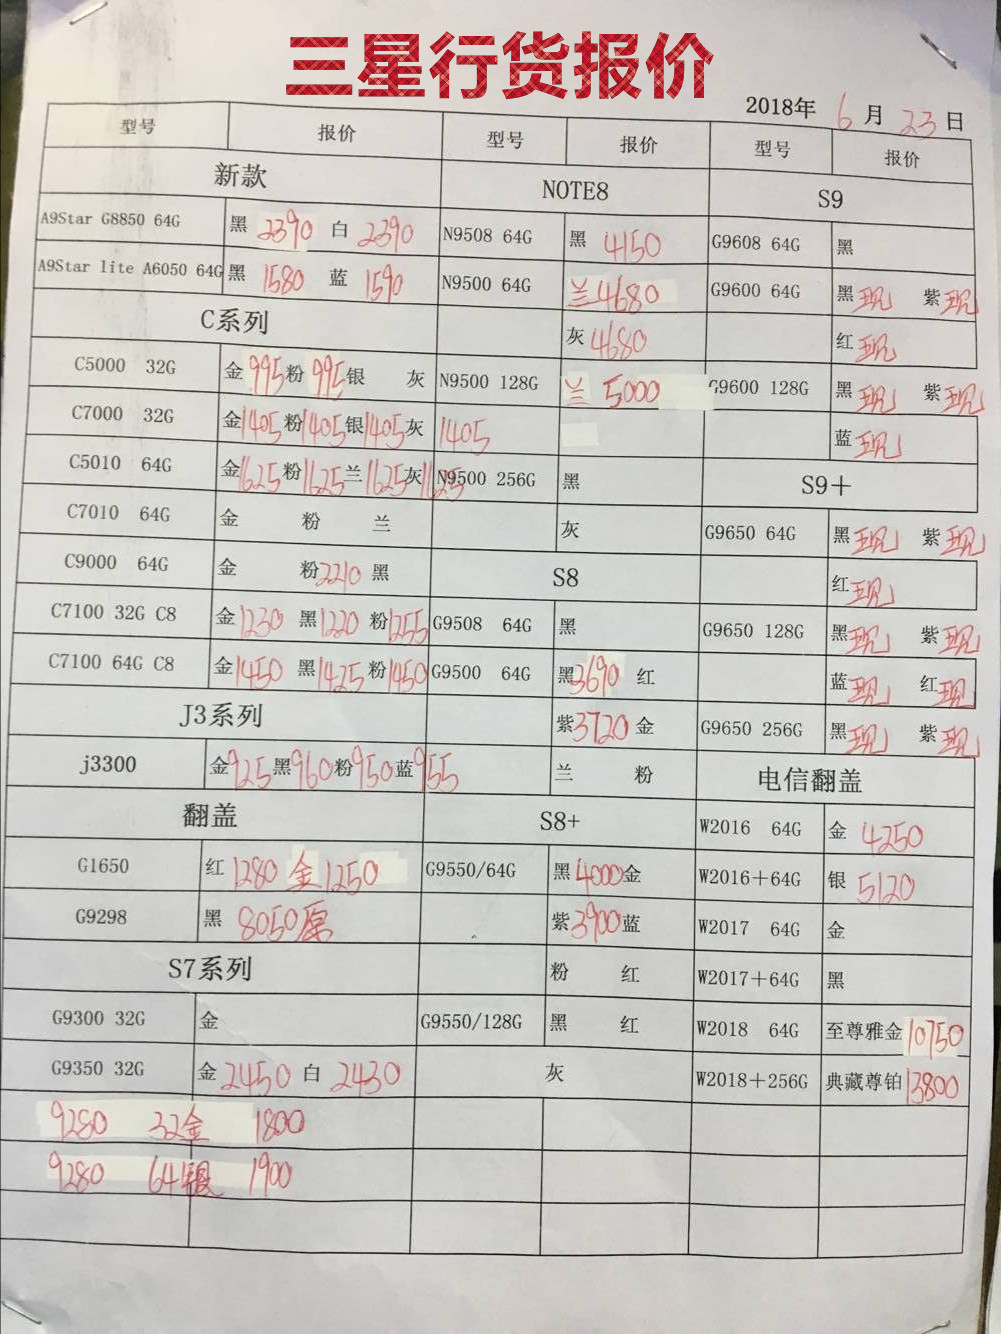 三星行货报价
2018年 6 月 23 日
型号 报价 型号 报价 型号 报价
新款 NOTE8 S9
A9Star G8850 64G 黑 2390 白 2390 N9508 64G 黑 4150 G9608 64G 黑
A9Star lite A6050 64G 黑 1580 蓝 1590 N9500 64G 兰 4680 G9600 64G 黑 现 紫 现
C系列 灰 4680 红 现
C5000 32G 金 995 粉 995 银 灰 N9500 128G 兰 5000 G9600 128G 黑 现 紫 现
C7000 32G 金 1405 粉 1405 银 1405 灰 1405 蓝 现
C5010 64G 金 1625 粉 1625 兰 1625 灰 1625 N9500 256G 黑 S9+
C7010 64G 金 粉 兰 灰 G9650 64G 黑 现 紫 现
C9000 64G 金 粉 2210 黑 S8 红 现
C7100 32G C8 金 1230 黑 1220 粉 1255 G9508 64G 黑 G9650 128G 黑 现 紫 现
C7100 64G C8 金 1450 黑 1425 粉 1450 G9500 64G 黑 3690 红 蓝 现 红 现
J3系列 紫 3720 金 G9650 256G 黑 现 紫 现
j3300 金 925 黑 960 粉 950 蓝 955 兰 粉 电信翻盖
翻盖 S8+ W2016 64G 金 4250
G1650 红 1280 金 1250 G9550/64G 黑 4000 金 W2016+64G 银 5120
G9298 黑 8050原 紫 3900 蓝 W2017 64G 金
S7系列 粉 红 W2017+64G 黑
G9300 32G 金 G9550/128G 黑 红 W2018 64G 至尊雅金 10750
G9350 32G 金 2450 白 2430 灰 W2018+256G 典藏尊铂 13800
9280 32金 1800
9280 64银 1900